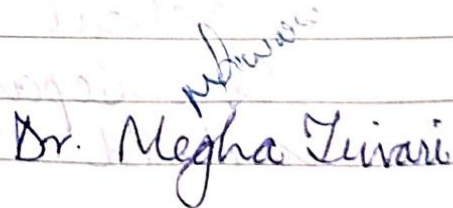 Dr. Megha Tiwari